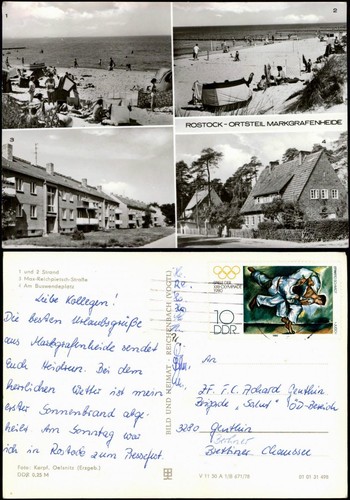 1
2
3
ROSTOCK - ORTSTEIL MARKGRAFENHEIDE
1 und 2 Strand
3 Max-Reichpietsch-Straße
4 Am Buswendeplatz
Liebe Kollegen!
Die besten Urlaubsgrüße
aus Markgrafenheide sendet
Euch Heidrun. Bei dem
herrlichen Wetter ist mein
erster Sonnenbrand abge-
heilt. Am Sonntag war
ich in Rostock zum Pressefest.
Foto: Kempf, Oelsnitz (Erzgeb.)
BILD UND HEIMAT REICHENBACH (VOGTL)
SPIELE DER
XXII. OLYMPIADE
1980
10
DDR
An
Brigade „Salut" ÖD-Bereich
3280 Genthin
Berliner Chaussee
V 11 30 A 1/B 671/78
01 01 31 418